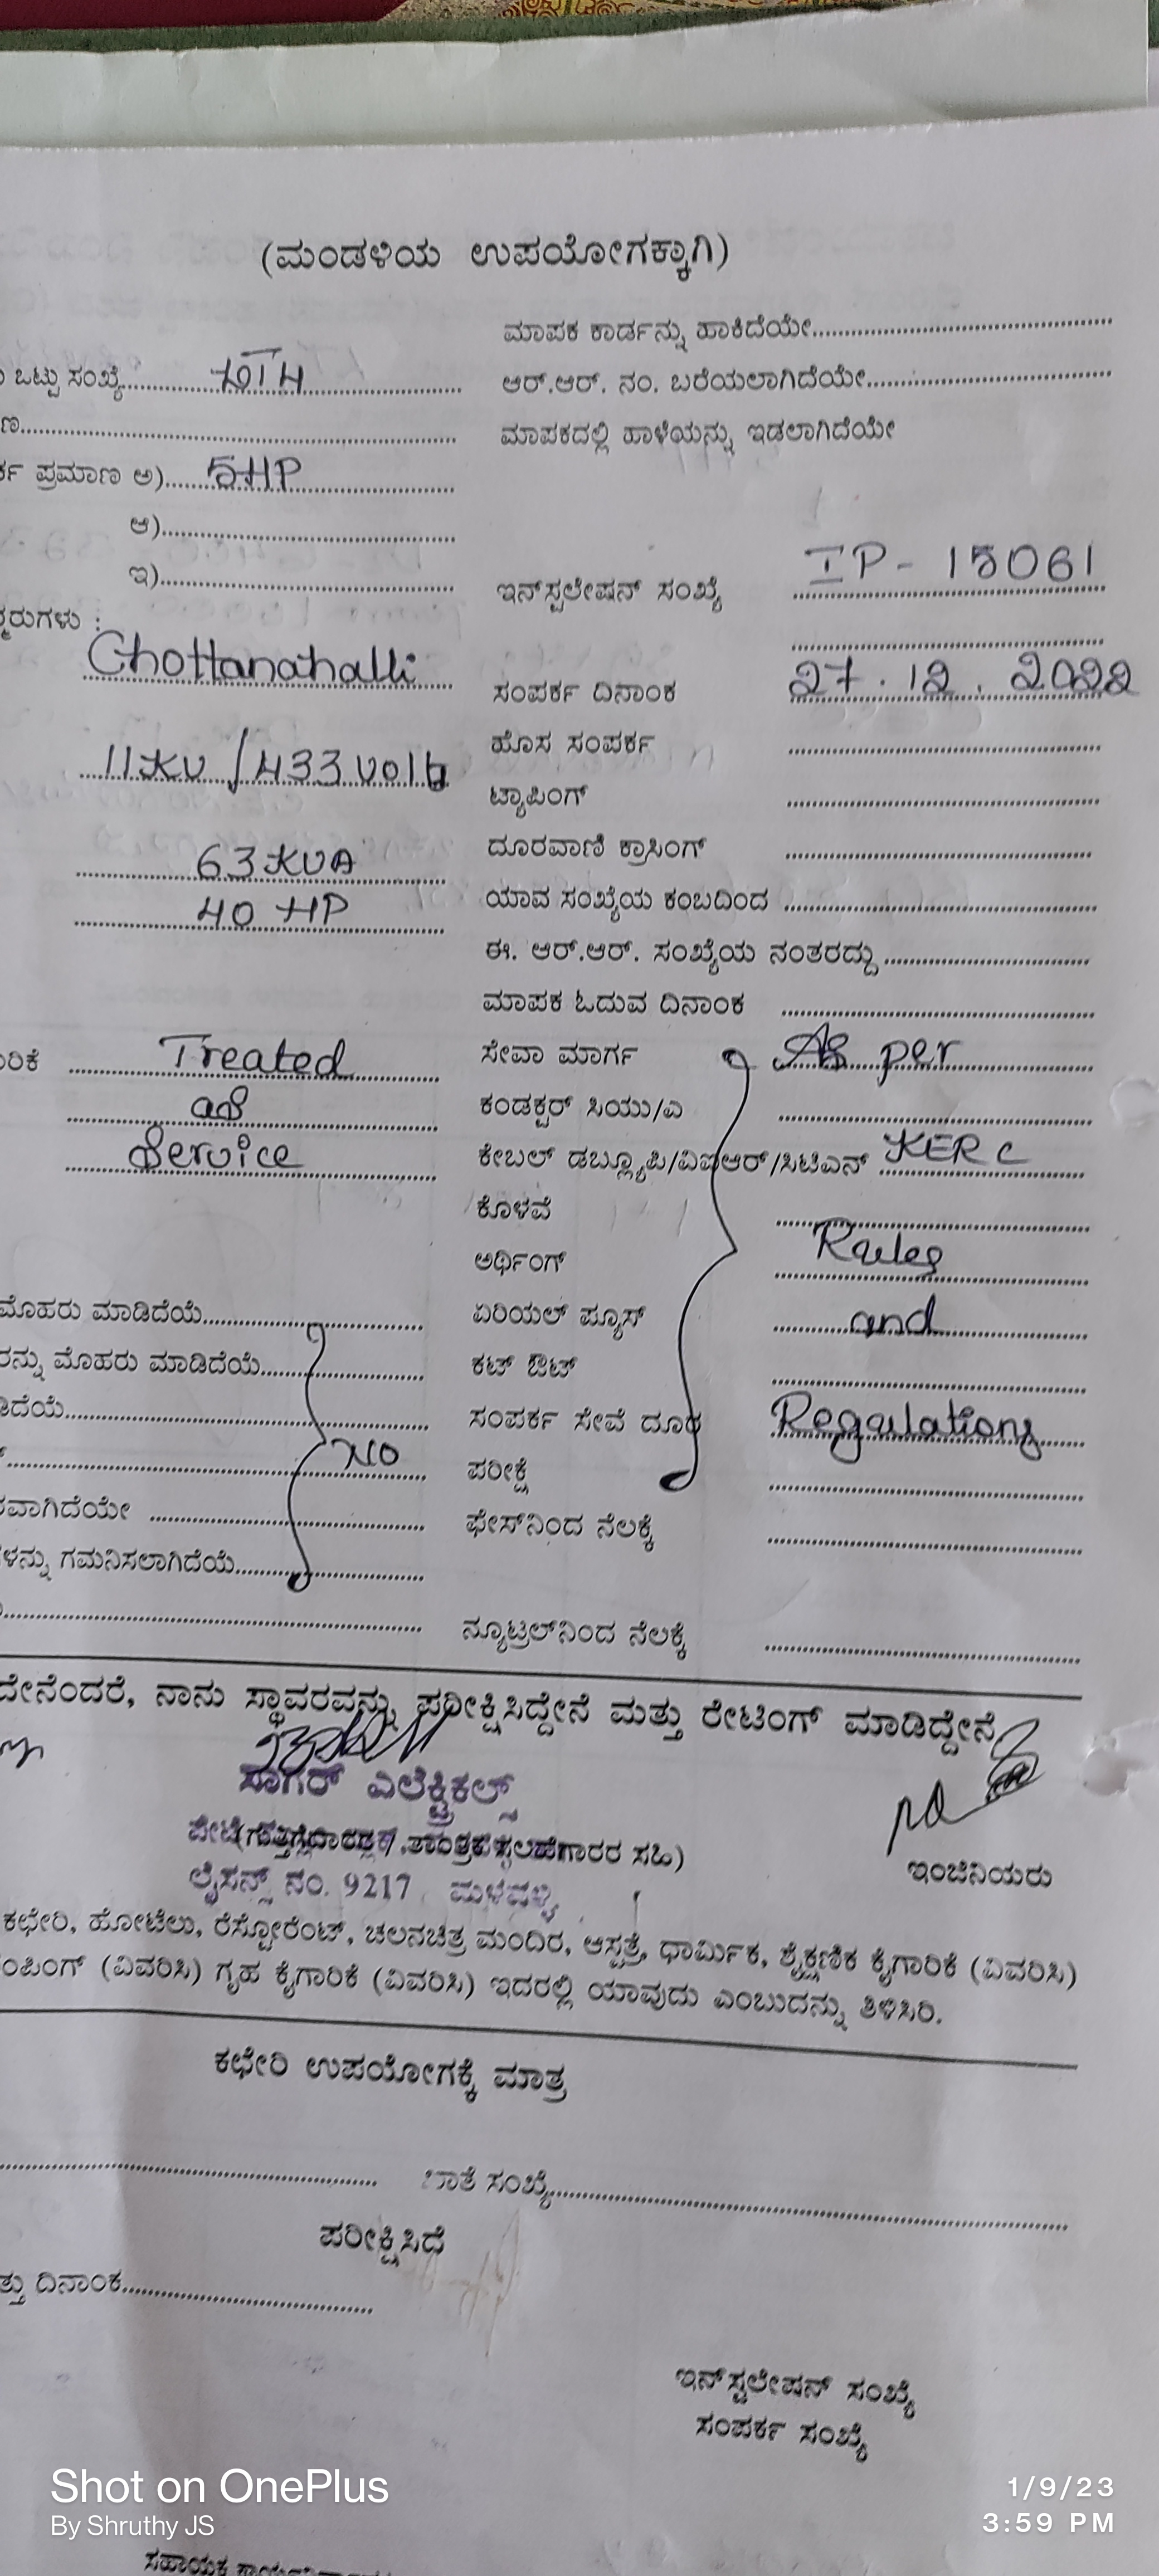 (ಮಂಡಳಿಯ ಉಪಯೋಗಕ್ಕಾಗಿ)
ಮಾಪಕ ಕಾರ್ಡನ್ನು ಹಾಕಿದೆಯೇ
ಒಟ್ಟು ಸಂಖ್ಯೆ
ಆರ್.ಆರ್. ನಂ. ಬರೆಯಲಾಗಿದೆಯೇ
ಮಾಪಕದಲ್ಲಿ ಹಾಳೆಯನ್ನು ಇಡಲಾಗಿದೆಯೇ
ಪ್ರಮಾಣ ಅ) 5HP
ಆ)
ಇ)
ಇನ್‌ಸ್ಪಲೇಷನ್ ಸಂಖ್ಯೆ IP- 15061
Chottanahalli
ಸಂಪರ್ಕ ದಿನಾಂಕ 27.12.2022
11KV/433volts
ಹೊಸ ಸಂಪರ್ಕ
ಟ್ಯಾಪಿಂಗ್
63KVA
ದೂರವಾಣಿ ಕ್ರಾಸಿಂಗ್
40 HP
ಯಾವ ಸಂಖ್ಯೆಯ ಕಂಬದಿಂದ
ಈ. ಆರ್.ಆರ್. ಸಂಖ್ಯೆಯ ನಂತರದ್ದು
ಮಾಪಕ ಓದುವ ದಿನಾಂಕ
Treated
ಸೇವಾ ಮಾರ್ಗ As per
as
ಕಂಡಕ್ಟರ್ ಸಿಯು/ಎ
Service
ಕೇಬಲ್ ಡಬ್ಲ್ಯೂಪಿ/ವಿಐಆರ್/ಸಿಟಿಎಸ್ KERC
ಕೊಳವೆ
ಅರ್ಥಿಂಗ್ Rules
ಮೊಹರು ಮಾಡಿದೆಯೆ
ಏರಿಯಲ್ ಫ್ಯೂಸ್ and
ರನ್ನು ಮೊಹರು ಮಾಡಿದೆಯೆ
ಕಟ್ ಔಟ್
ಸಂಪರ್ಕ ಸೇವೆ ದೂರ Regulations
NO
ಪರೀಕ್ಷೆ
ವಾಗಿದೆಯೇ
ಫೇಸ್‌ನಿಂದ ನೆಲಕ್ಕೆ
ಳನ್ನು ಗಮನಿಸಲಾಗಿದೆಯೆ
ನ್ಯೂಟ್ರಲ್‌ನಿಂದ ನೆಲಕ್ಕೆ
ದೇನೆಂದರೆ, ನಾನು ಸ್ಥಾವರವನ್ನು ಪರೀಕ್ಷಿಸಿದ್ದೇನೆ ಮತ್ತು ರೇಟಿಂಗ್ ಮಾಡಿದ್ದೇನೆ
ಸಾಗರ್ ಎಲೆಕ್ಟ್ರಿಕಲ್ಸ್
ಇಂಜಿನಿಯರು
ಲೈಸನ್ಸ್ ನಂ. 9217 ಮಳವಳ್ಳಿ
ಕಛೇರಿ, ಹೋಟೆಲು, ರೆಸ್ಟೋರೆಂಟ್, ಚಲನಚಿತ್ರ ಮಂದಿರ, ಆಸ್ಪತ್ರೆ, ಧಾರ್ಮಿಕ, ಶೈಕ್ಷಣಿಕ ಕೈಗಾರಿಕೆ (ವಿವರಿಸಿ)
ಂಪಿಂಗ್ (ವಿವರಿಸಿ) ಗೃಹ ಕೈಗಾರಿಕೆ (ವಿವರಿಸಿ) ಇದರಲ್ಲಿ ಯಾವುದು ಎಂಬುದನ್ನು ತಿಳಿಸಿರಿ.
ಕಛೇರಿ ಉಪಯೋಗಕ್ಕೆ ಮಾತ್ರ
ಖಾತೆ ಸಂಖ್ಯೆ
ಪರೀಕ್ಷಿಸಿದೆ
ದಿನಾಂಕ
ಇನ್‌ಸ್ಟಲೇಷನ್ ಸಂಖ್ಯೆ
ಸಂಪರ್ಕ ಸಂಖ್ಯೆ
Shot on OnePlus
By Shruthy JS
1/9/23
3:59 PM